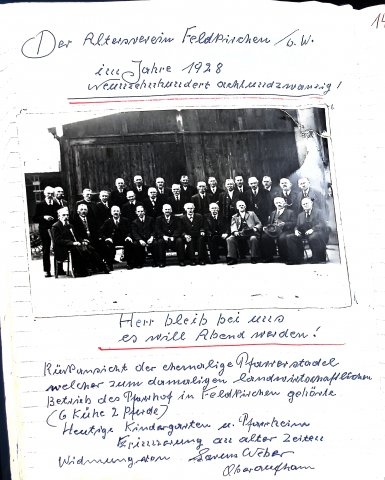 14
Der Altersverein Feldkirchen /b. W.
im Jahre 1928
neunzehnhundert achtundzwanzig!
Herr bleib bei uns
es will Abend werden!
Rückansicht der ehemalige Pfarrerstadel
welcher zum damaligen landwirtschaftlichen
Betrieb des Pfarrhof in Feldkirchen gehörte
(6 Kühe 2 Pferde)
Heutige Kindergarten u. Pfarrheim
Erinnerung an alter Zeiten
Widmung von Weber